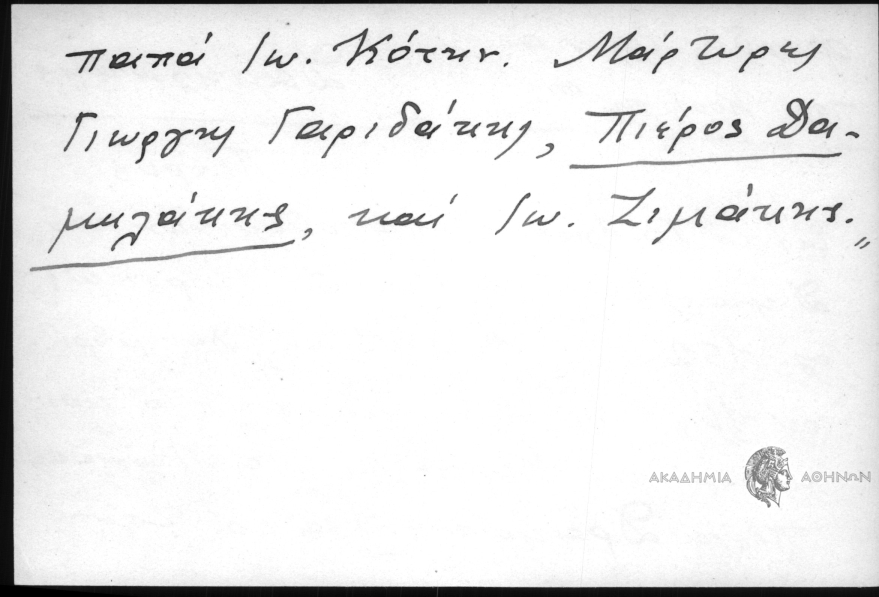 παπά Ιω. Κότην. Μάρτυρες
Γιώργης Γαριδάκης, Πιέρος Δα-
μηλάκης, καί Ιω. Σιμάκης.„
ΑΚΑΔΗΜΙΑ ΑΘΗΝΩΝ